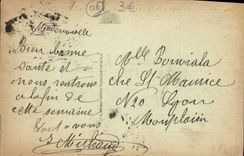 06 3€
Mademoiselle
Bien bonne
santé et
nous rentrons
a la fin de
cette semaine
Tout a vous
Mlle
che St Maurice
N20 Lyon
Monplaisir